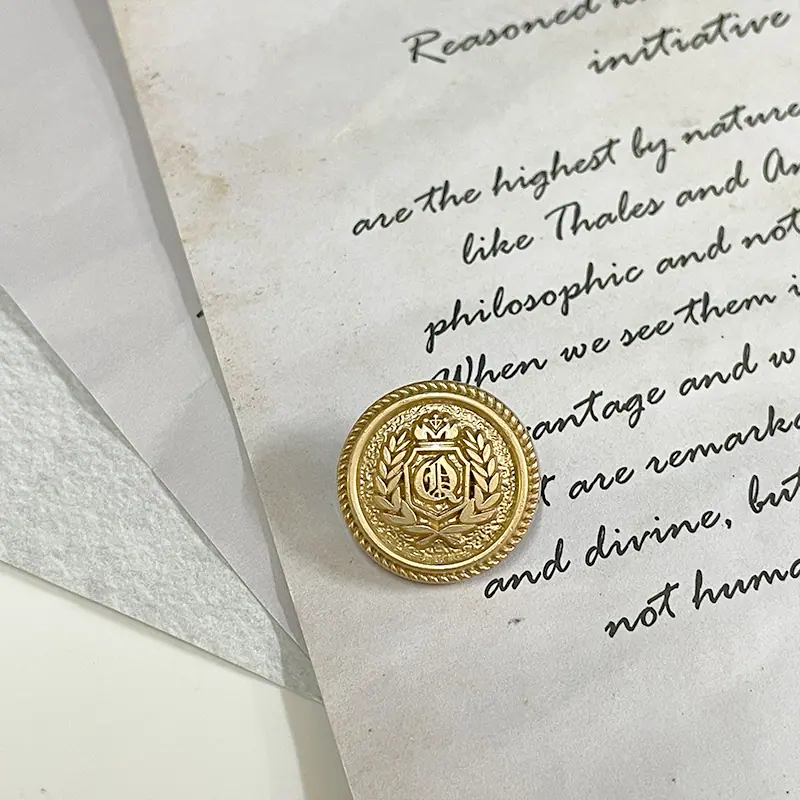 Reasoned
initiative
are the highest by nature
like Thales and
philosophic and not
When we see them
antage and
are remark
and divine, but
not huma
Q